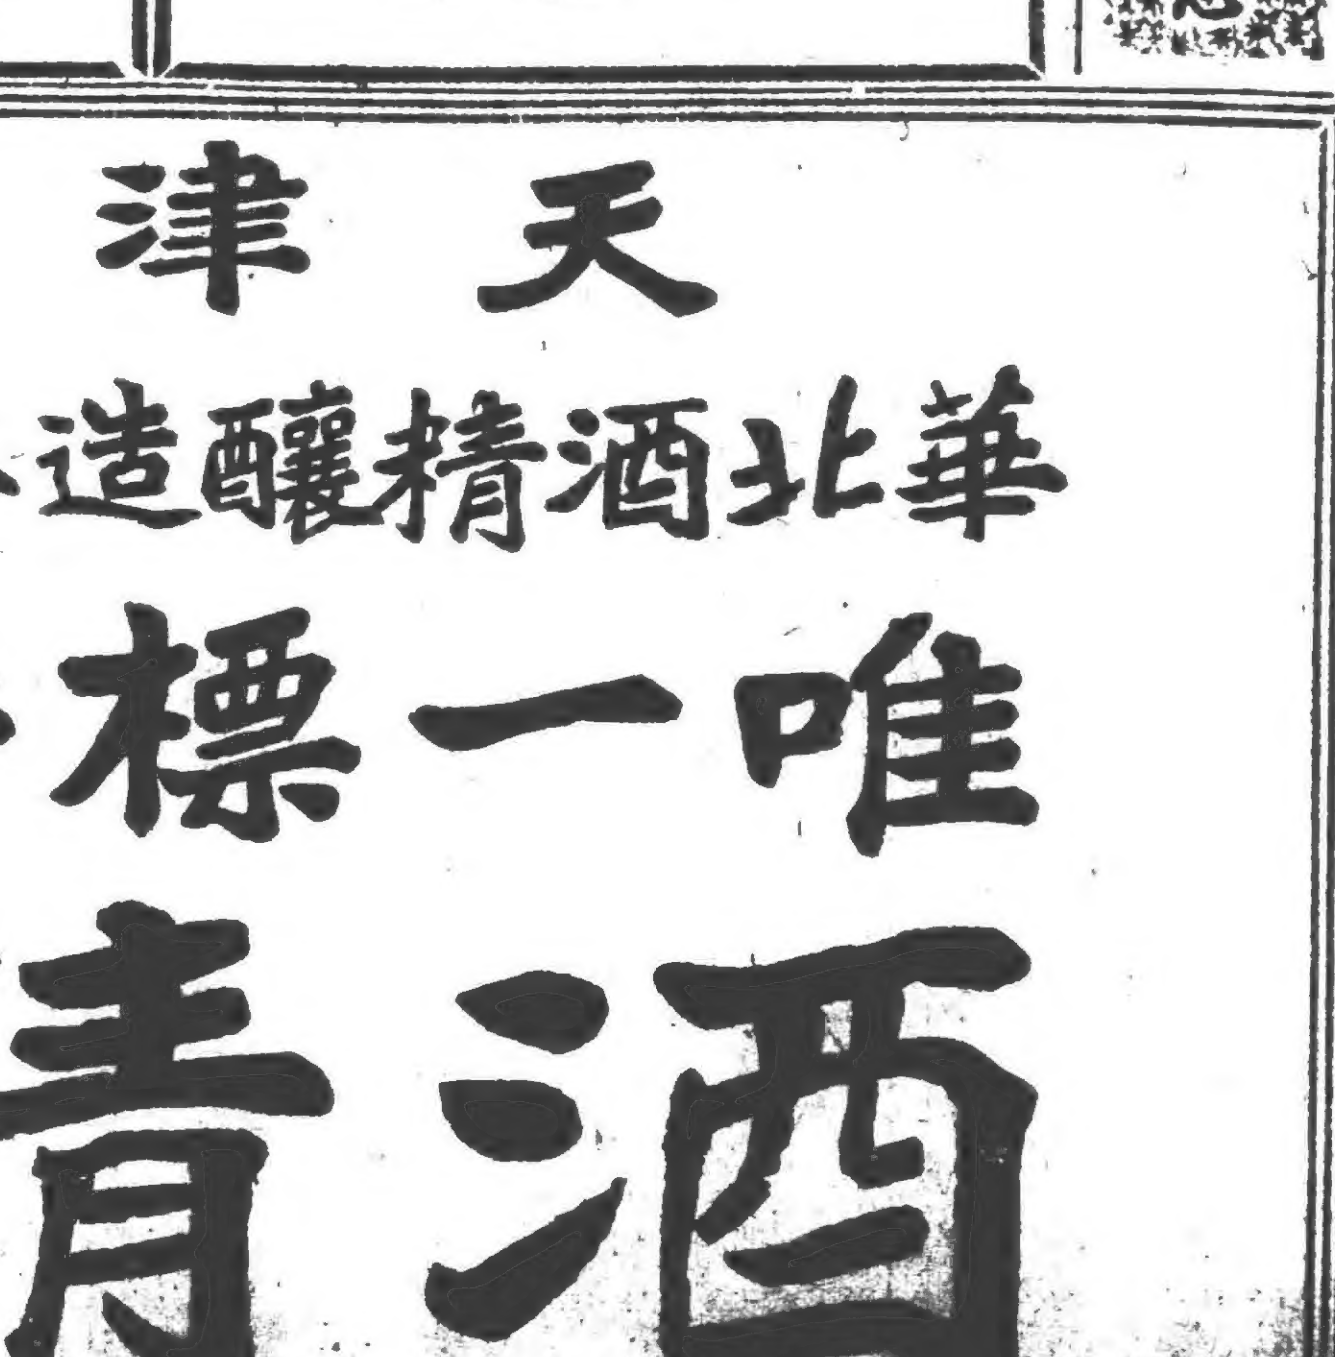 天津
華北酒精釀造
唯一標
酒